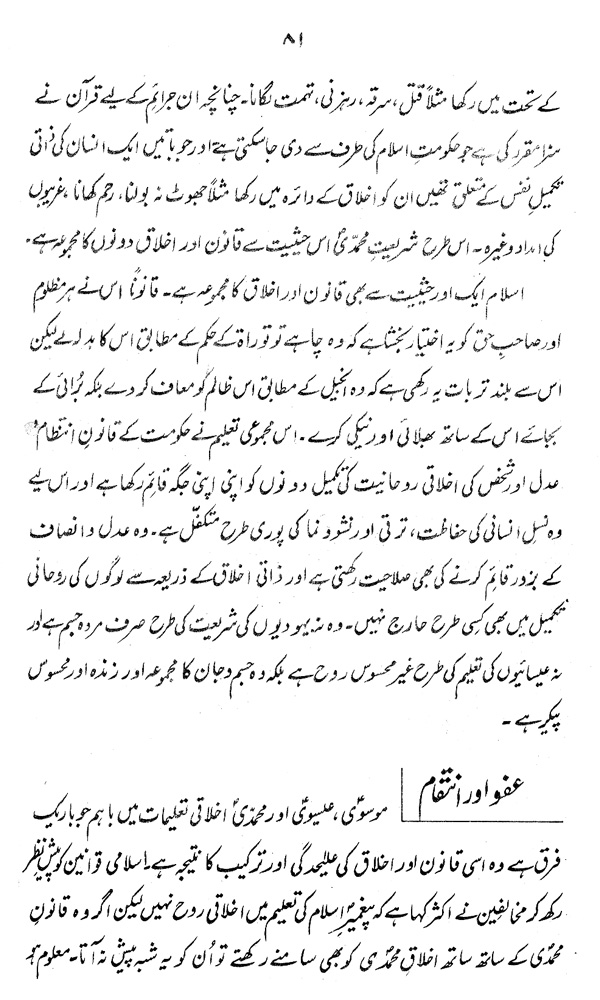 ۸۱
کے تحت میں رکھا مثلاً قتل، سرقہ، رہزنی، تہمت لگانا۔ چنانچہ ان جرائم کے لیے قرآن نے
سزا مقرر کی ہے جو حکومتِ اسلام کی طرف سے دی جا سکتی ہے اور جو باتیں ایک انسان کی ذاتی
تکمیلِ نفس کے متعلق تھیں ان کو اخلاق کے دائرہ میں رکھا مثلاً جھوٹ نہ بولنا، رحم کھانا، غریبوں
کی امداد وغیرہ۔ اس طرح شریعتِ محمدیؐ اس حیثیت سے قانون اور اخلاق دونوں کا مجموعہ ہے۔
اسلام ایک اور حیثیت سے بھی قانون اور اخلاق کا مجموعہ ہے۔ قانوناً اس نے ہر مظلوم
اور صاحبِ حق کو یہ اختیار بخشا ہے کہ وہ چاہے تو توراۃ کے حکم کے مطابق اس کا بدلہ لے لیکن
اس سے بلند تر بات یہ رکھی ہے کہ وہ انجیل کے مطابق اس ظالم کو معاف کر دے بلکہ بُرائی کے
بجائے اس کے ساتھ بھلائی اور نیکی کرے۔ اس مجموعی تعلیم نے حکومت کے قانونِ انتظام و
عدل اور شخص کی اخلاقی روحانیت کی تکمیل دونوں کو اپنی اپنی جگہ قائم رکھا ہے اور اس لیے
وہ نسلِ انسانی کی حفاظت، ترقی اور نشوونما کی پوری طرح متکفّل ہے۔ وہ عدل و انصاف
کے بزور قائم کرنے کی بھی صلاحیت رکھتی ہے اور ذاتی اخلاق کے ذریعہ سے لوگوں کی روحانی
تکمیل میں بھی کسی طرح حارج نہیں۔ وہ نہ یہودیوں کی شریعت کی طرح صرف مردہ جسم ہے اور
نہ عیسائیوں کی تعلیم کی طرح غیر محسوس روح ہے بلکہ وہ جسم و جان کا مجموعہ اور زندہ اور محسوس
پیکر ہے۔
عفو اور انتقام
موسویؑ، عیسویؑ اور محمدیؐ اخلاقی تعلیمات میں باہم جو باریک
فرق ہے وہ اسی قانون اور اخلاق کی علیحدگی اور ترکیب کا نتیجہ ہے۔ اسلامی قوانین کو پیشِ نظر
رکھ کر مخالفین نے اکثر کہا ہے کہ پیغمبرِ اسلام کی تعلیم میں اخلاقی روح نہیں لیکن اگر وہ قانونِ
محمدی کے ساتھ ساتھ اخلاقِ محمدی کو بھی سامنے رکھتے تو اُن کو یہ شبہ پیش نہ آتا۔ معلوم ہو